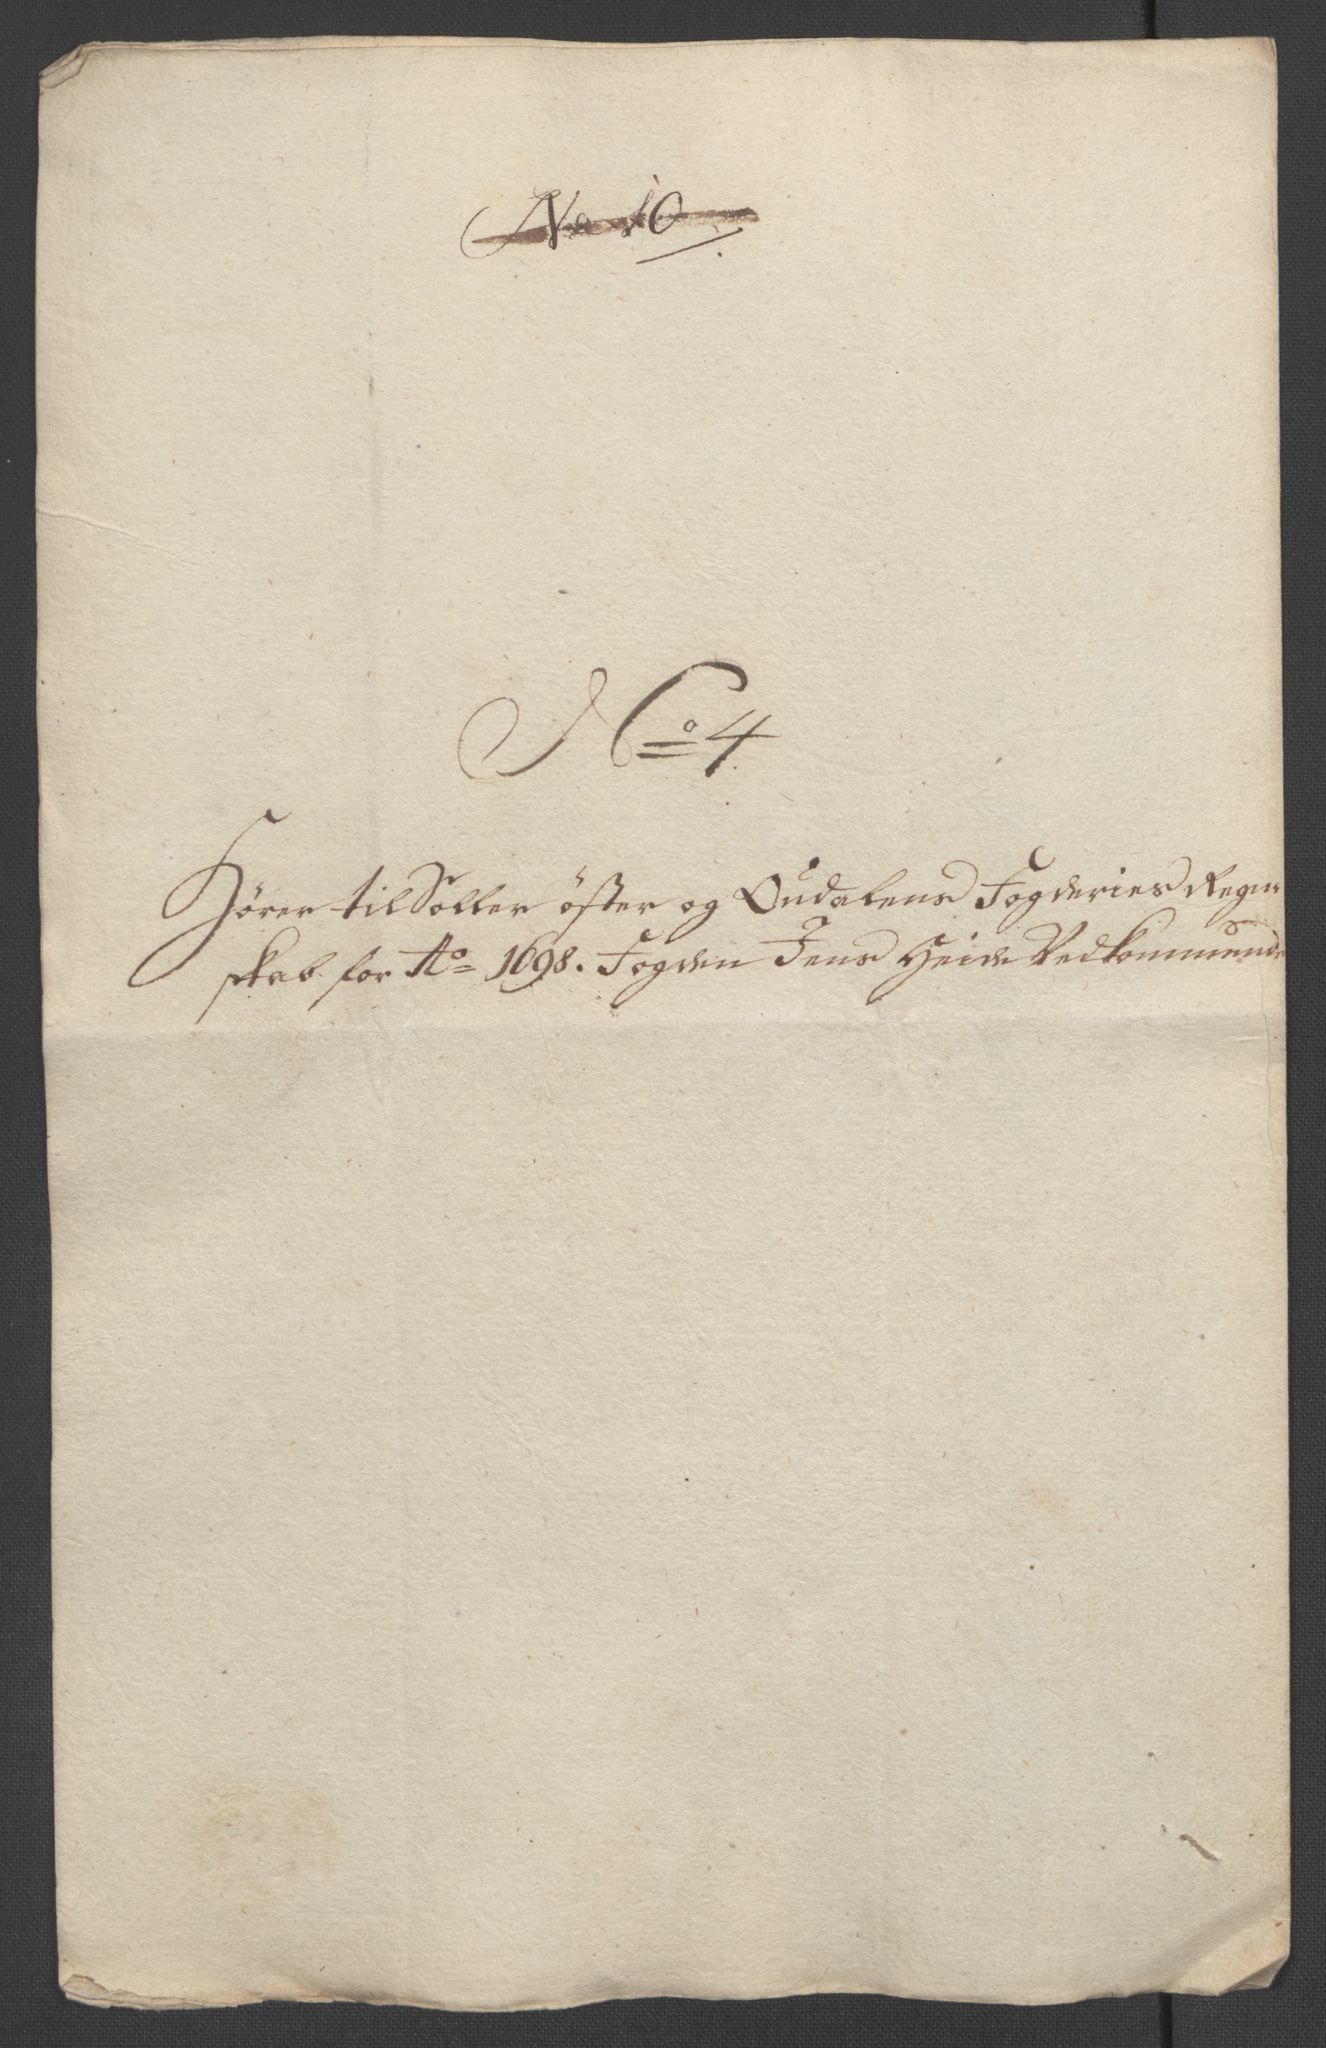 No 10
No 4
Hörer til Soller öster og Oudalens Fogderies Regen-
skab for Ao 1698. Fogden Jens Heide Vedkommende